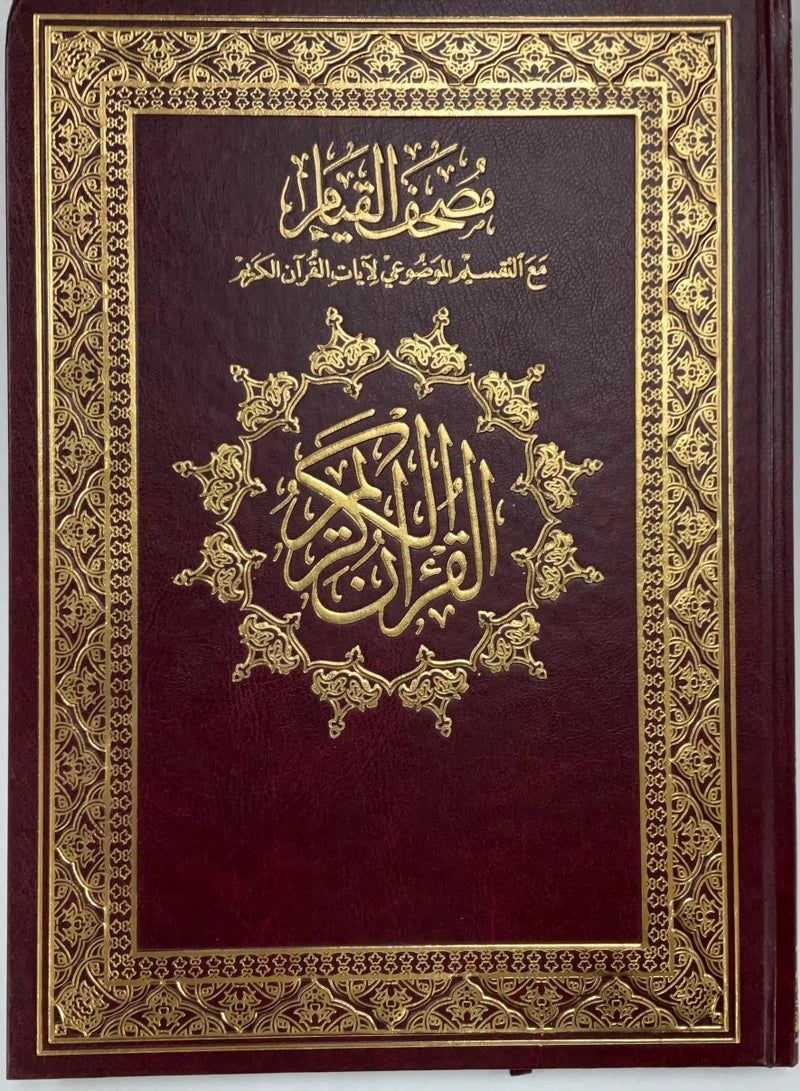 مُصْحَفُ القِيَامِ
مَعَ التَّقسِيْمِ المَوضُوعِيْ لِآيَاتِ القُرآنِ الكَرِيْمِ
القُرْآن الكَرِيم